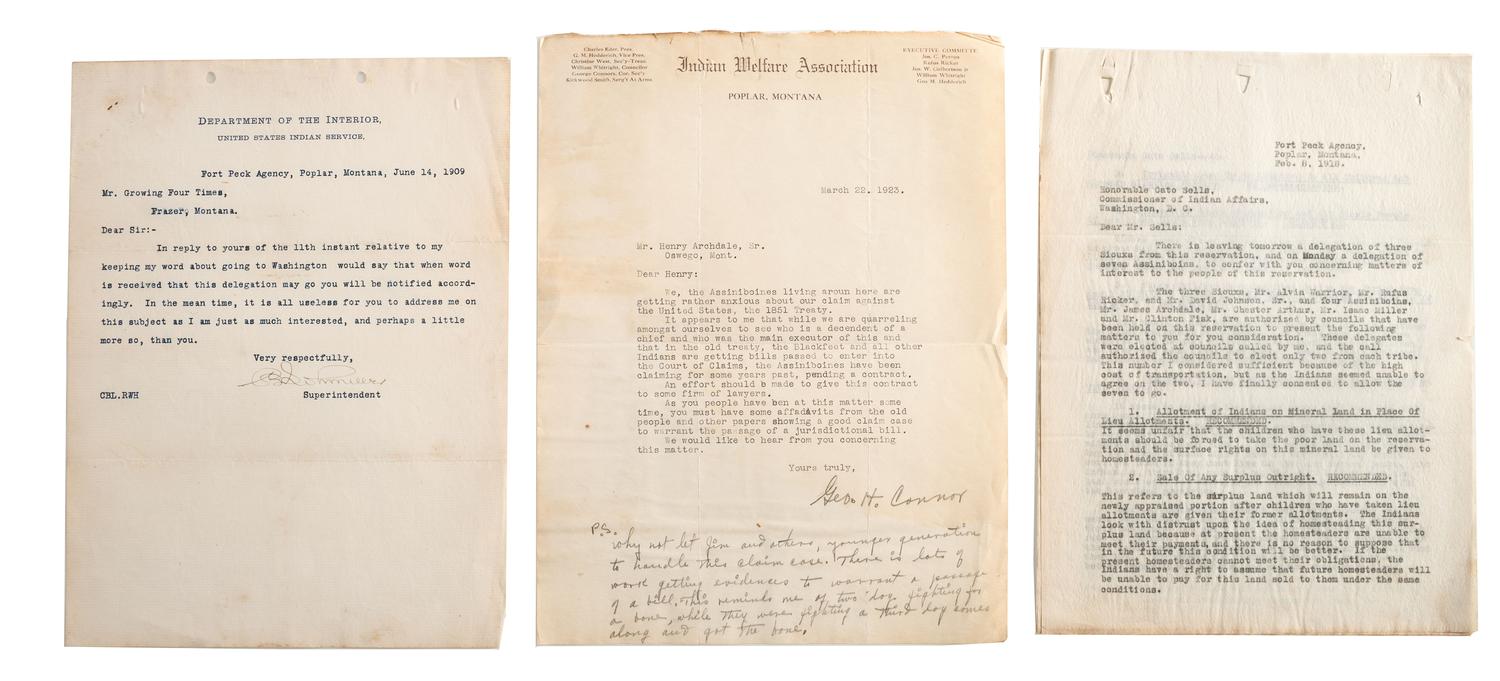 DEPARTMENT OF THE INTERIOR,
UNITED STATES INDIAN SERVICE,
Fort Peck Agency, Poplar, Montana, June 14, 1909
Mr. Growing Four Times,
Frazer, Montana.
Dear Sir:-
In reply to yours of the 11th instant relative to my
keeping my word about going to Washington would say that when word
is received that this delegation may go you will be notified accord-
ingly. In the mean time, it is all useless for you to address me on
this subject as I am just as much interested, and perhaps a little
more so, than you.
Very respectfully,
CBL.RWH
Superintendent
Charles Eder, Pres.
G. M. Hedderich, Vice Pres.
Christine West, Sec'y-Treas.
William Whitright, Councilor
George Connors, Cor. Sec'y
Kirkwood Smith, Serg't At Arms
Indian Welfare Association
EXECUTIVE COMMITTE
Jas. C.
Rufus Ricker
Jas. W.
William Whitright
Geo M. Hedderich
POPLAR, MONTANA
March 22. 1923.
Mr. Henry Archdale, Sr.
Oswego, Mont.
Dear Henry:
We, the Assiniboines living aroun here are
getting rather anxious about our claim against
the United States, the 1851 Treaty.
It appears to me that while we are quarreling
amongst ourselves to see who is a decendent of a
chief and who was the main executor of this and
that in the old treaty, the Blackfeet and all other
Indians are getting bills passed to enter into
the Court of Claims, the Assiniboines have been
claiming for some years past, pending a contract.
An effort should b made to give this contract
to some firm of lawyers.
As you people have ben at this matter some
time, you must have some affadavits from the old
people and other papers showing a good claim case
to warrant the passage of a jurisdictional bill.
We would like to hear from you concerning
this matter.
Yours truly,
Geo. H. Connor
P.S.
Why not let Jim and others, younger generation
to handle this claim case. There is lots of
work getting evidences to warrant a passage
of a bill. This reminds me of two dog fighting for
a bone, while they were fighting a third dog comes
along and got the bone.
Fort Peck Agency,
Poplar, Montana,
Feb. 8, 1918.
Honorable Cato Sells,
Commissioner of Indian Affairs,
Washington, D. C.
Dear Mr. Sells:
There is leaving tomorrow a delegation of three
Sioux from this reservation, and on Monday a delegation of
seven Assiniboins, to confer with you concerning matters of
interest to the people of this reservation.
The three Sioux, Mr. Alvin Warrior, Mr. Rufus
Ricker, and Mr. David Johnson, Sr., and four Assiniboins,
Mr. James Archdale, Mr. Chester Arthur, Mr. Isaac Miller
and Mr. Clinton Fisk, are authorized by councils that have
been held on this reservation to present the following
matters to you for you consideration. These delegates
were elected at councils called by me, and the call
authorized the councils to elect only two from each tribe.
This number I considered sufficient because of the high
cost of transportation, but as the Indians seemed unable to
agree on the two, I have finally consented to allow the
seven to go.
1. Allotment of Indians on Mineral Land in Place Of
Lieu Allotments. RECOMMENDED.
It seems unfair that the children who have these lieu allot-
ments should be forced to take the poor land on the reserva-
tion and the surface rights on this mineral land be given to
homesteaders.
2. Sale Of Any Surplus Outright. RECOMMENDED.
This refers to the surplus land which will remain on the
newly appraised portion after children who have taken lieu
allotments are given their former allotments. The Indians
look with distrust upon the idea of homesteading this sur-
plus land because at present the homesteaders are unable to
meet their payments, and there is no reason to suppose that
in the future this condition will be better. If the
present homesteaders cannot meet their obligations, the
Indians have a right to assume that future homesteaders will
be unable to pay for this land sold to them under the same
conditions.